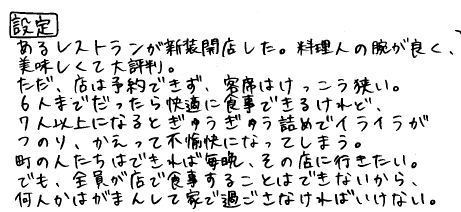 設定
あるレストランが新装開店した。料理人の腕が良く、
美味しくて大評判。
ただ、店は予約できず、客席はけっこう狭い。
6人までだったら快適に食事できるけれど、
7人以上になるとぎゅうぎゅう詰めでイライラが
つのり、かえって不愉快になってしまう。
町の人たちはできれば毎晩、その店に行きたい。
でも、全員が店で食事することはできないから、
何人かはがまんして家で過ごさなければいけない。